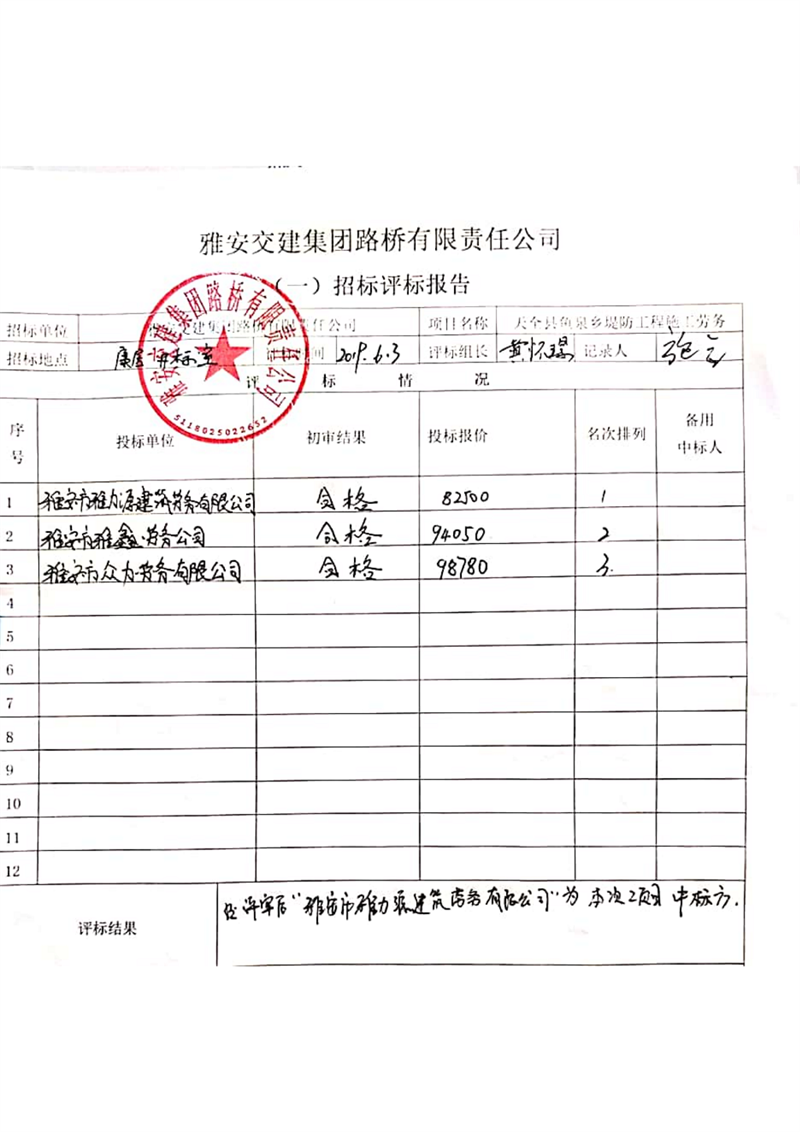 雅安交建集团路桥有限责任公司
（一）招标评标报告
招标单位 雅安交建集团路桥有限责任公司 项目名称 天全县鱼泉乡堤防工程施工劳务
招标地点 开标室 间 2019.6.3 评标组长 黄怀 记录人
评标情况
序号 投标单位 初审结果 投标报价 名次排列 备用中标人
1 雅安市雅力源建筑劳务有限公司 合格 82500 1
2 雅安市雅鑫劳务公司 合格 94050 2
3 雅安市众力劳务有限公司 合格 98780 3.
4
5
6
7
8
9
10
11
12
评标结果 经评审后"雅安市雅力源建筑劳务有限公司"为本次项目中标方.
雅安交建集团路桥有限责任公司
5118025022652